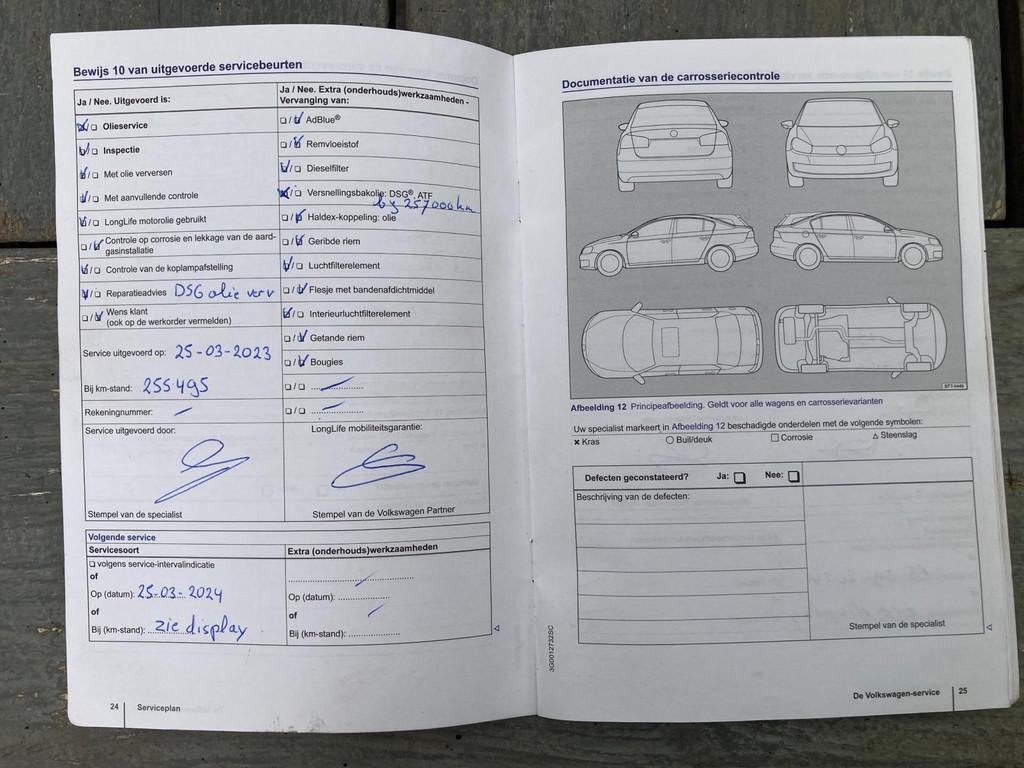 Bewijs 10 van uitgevoerde servicebeurten
Ja / Nee. Uitgevoerd is:
Ja / Nee. Extra (onderhouds)werkzaamheden -
Vervanging van:
Olieservice
AdBlue®
Inspectie
Remvloeistof
Met olie verversen
Dieselfilter
Met aanvullende controle
Versnellingsbakolie: DSG®, ATF
by 257000km
LongLife motorolie gebruikt
Haldex-koppeling: olie
Controle op corrosie en lekkage van de aard-
gasinstallatie
Geribde riem
Controle van de koplampafstelling
Luchtfilterelement
Reparatieadvies DSG olie verv
Flesje met bandenafdichtmiddel
Wens klant
(ook op de werkorder vermelden)
Interieurluchtfilterelement
Getande riem
Service uitgevoerd op: 25-03-2023
Bougies
Bij km-stand: 255495
Rekeningnummer: -
Service uitgevoerd door:
LongLife mobiliteitsgarantie:
Stempel van de specialist
Stempel van de Volkswagen Partner
Volgende service
Servicesoort
Extra (onderhouds)werkzaamheden
volgens service-intervalindicatie
of
Op (datum): 25-03-2024
Op (datum): ..............
of
of
Bij (km-stand): zie display
Bij (km-stand): ..............
24 Serviceplan
Documentatie van de carrosseriecontrole
Afbeelding 12 Principeafbeelding. Geldt voor alle wagens en carrosserievarianten
Uw specialist markeert in Afbeelding 12 beschadigde onderdelen met de volgende symbolen:
× Kras ○ Buil/deuk □ Corrosie △ Steenslag
Defecten geconstateerd? Ja: Nee:
Beschrijving van de defecten:
Stempel van de specialist
3G0012732SC
De Volkswagen-service 25